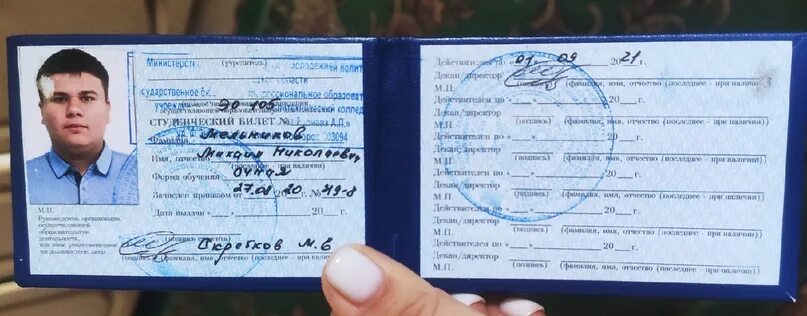 Министерств
олодежной полит
области
сударственное бю
фессиональное образоват
учрежден
ический колледж
20 105
СТУДЕНЧЕСКИЙ БИЛЕТ №
603094
Фамилия Мельников
Имя, отчество Михаил Николаевич
(последнее - при наличии)
Форма обучения очная
Зачислен приказом от 27.08 2020 г. №
Дата выдачи «___»______20___г.
М.П.
Руководитель организации,
осуществляющей
образовательную
деятельность,
или иное уполномоченное
им должностное лицо
Скрепков М.В
(подпись) (фамилия, имя, отчество (последнее - при наличии)
Действителен по 01 09 2021
Декан/директор
М.П. (подпись) (фамилия, имя, отчество (последнее - при наличии)
Действителен по «___»______20___г.
Декан/директор
М.П. (подпись) (фамилия, имя, отчество (последнее - при наличии)
Действителен по «___»______20___г.
Декан/директор
М.П. (подпись) (фамилия, имя, отчество (последнее - при наличии)
Действителен по «___»______20___г.
Декан/директор
М.П. (подпись) (фамилия, имя, отчество (последнее - при наличии)
Действителен по «___»______20___г.
Декан/директор
М.П. (подпись) (фамилия, имя, отчество (последнее - при наличии)